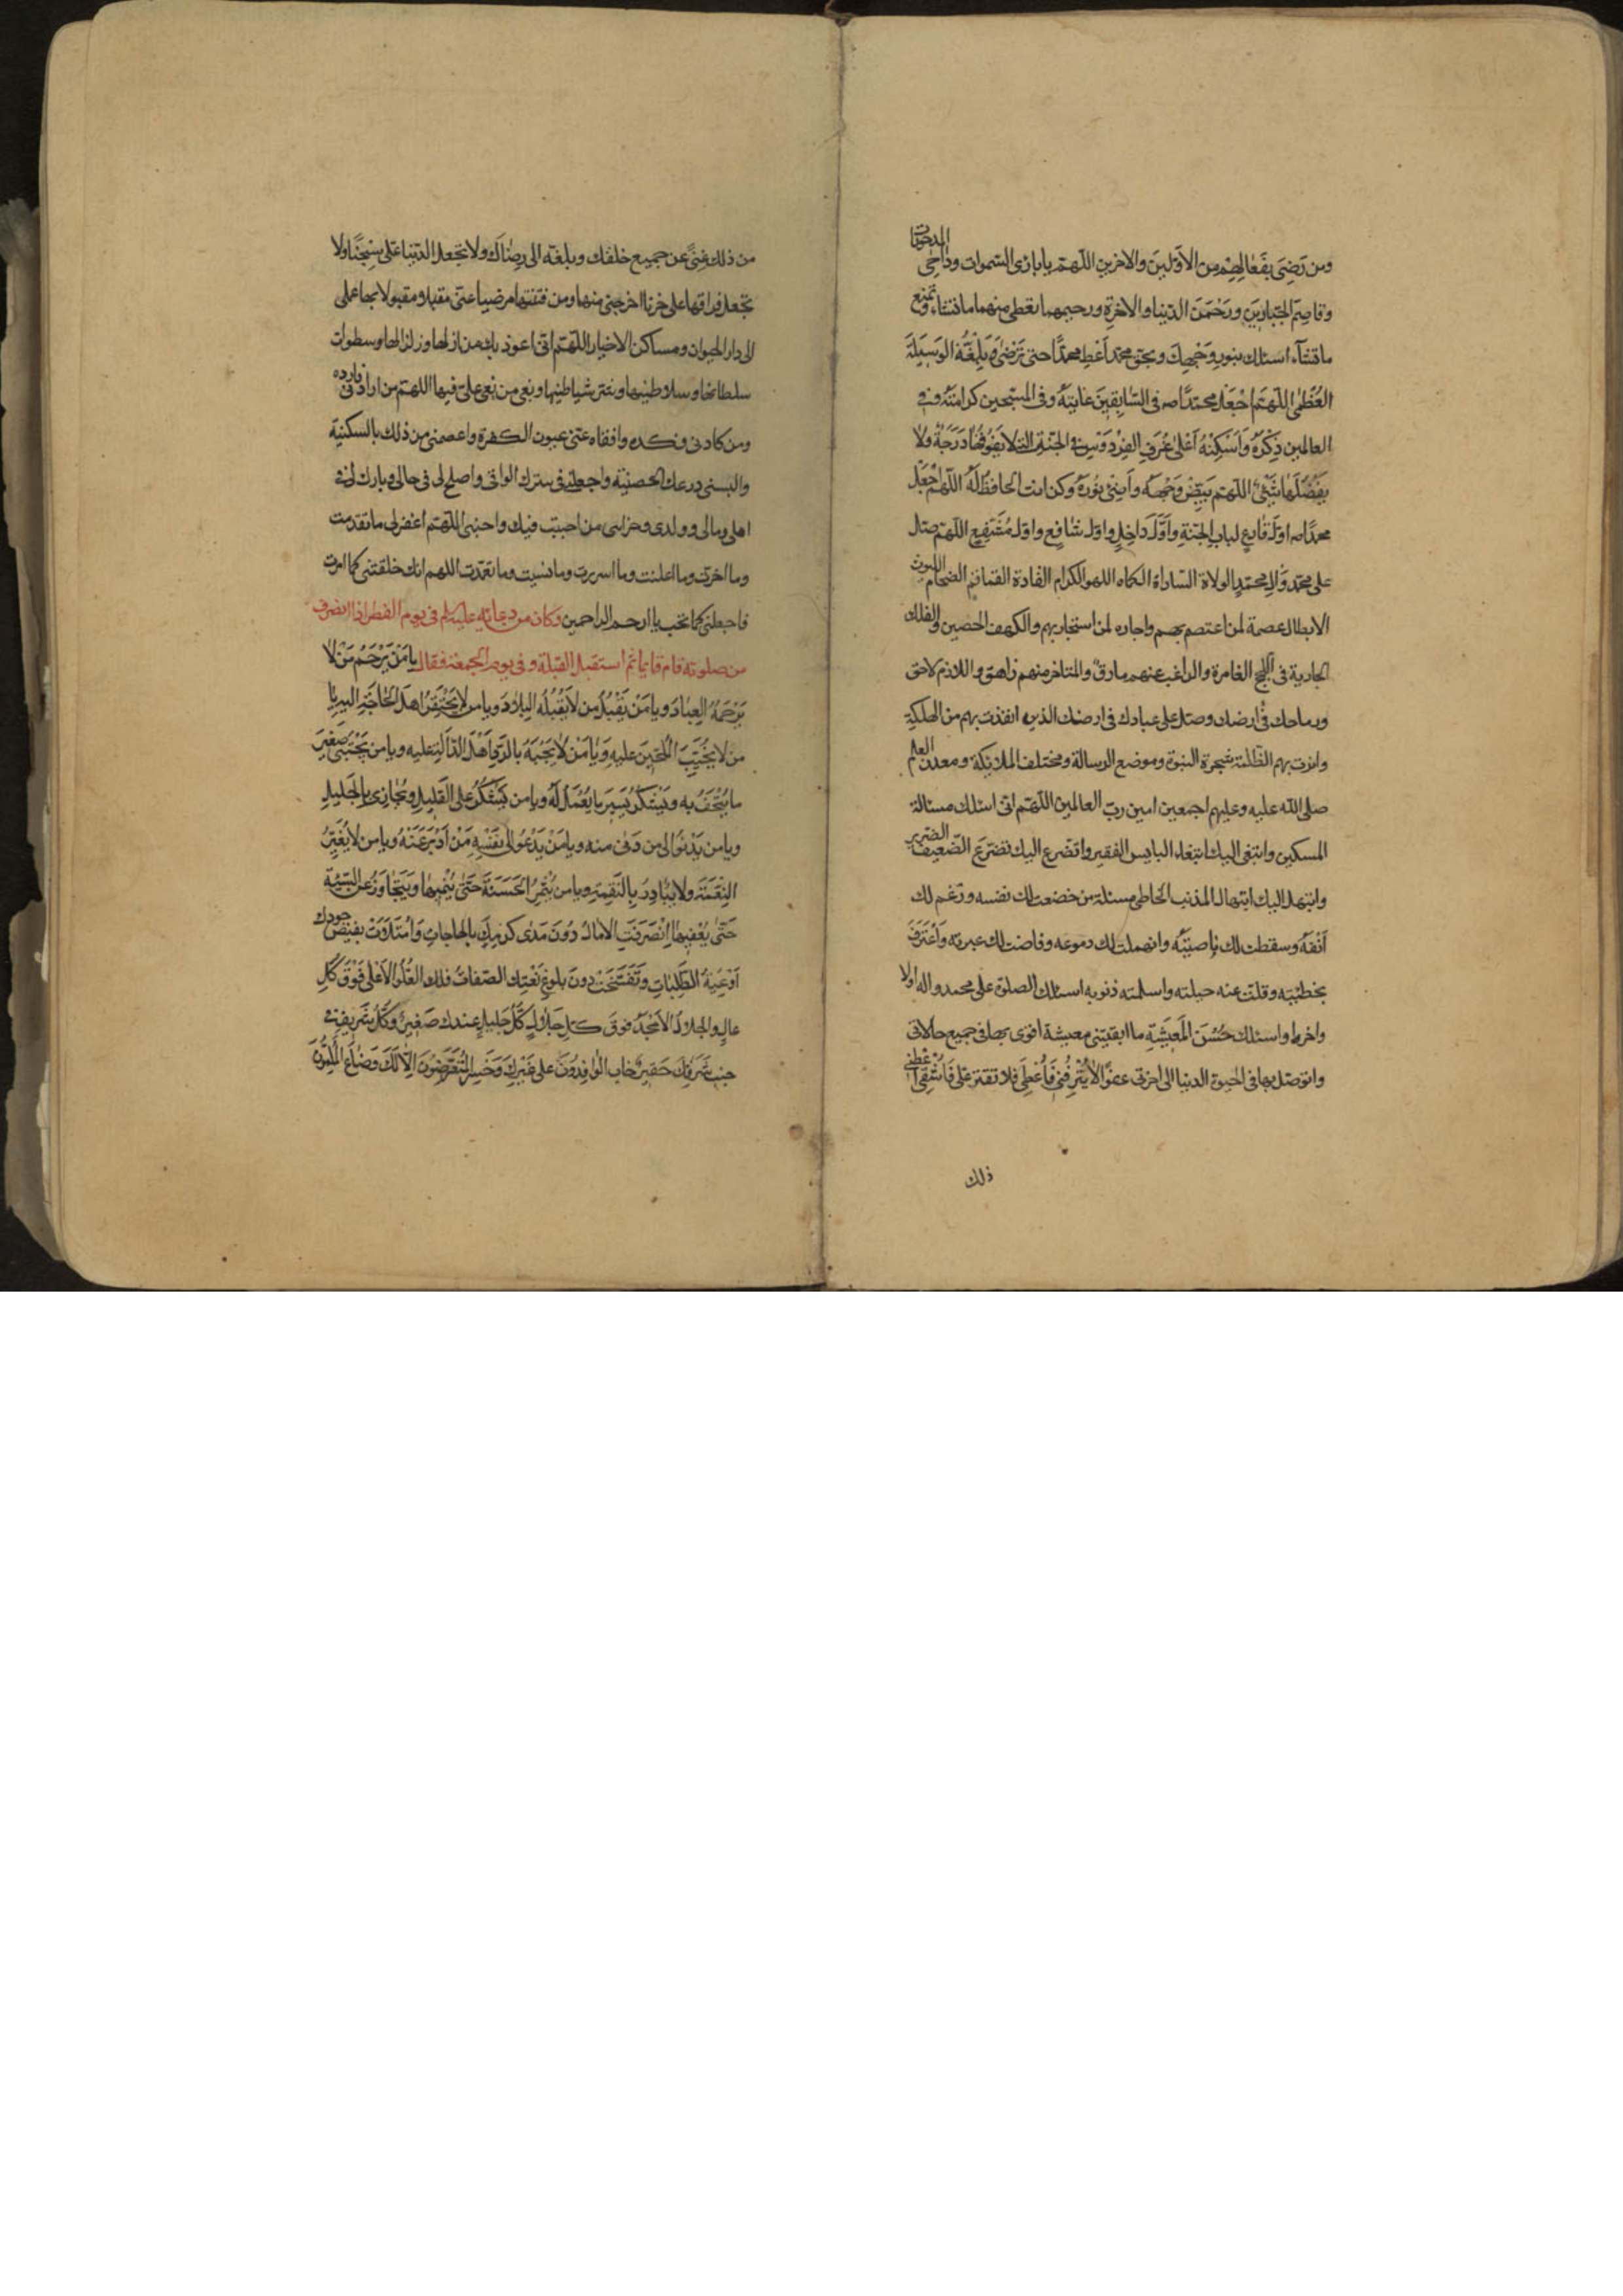 ومن رَضِيَ بِفَعَالِهِمْ مِن الاَوّلينَ والاخرين اللّهمّ يا بارئ السّموات وداحِى المدحوّات
وقاصِمَ الجَبّارِيَن ورَحْمنَ الدّنيا والاخرةِ ورحيمهما تعطى منهما ما تشاء وتمنع
ما تشآء اسئلك بنورِ وَجْهِكَ وبحق محمّد اَعْطِ محمدًا حتى تَرْضٰى وَبَلِّغْهُ الوَسيلَةَ
العُظْمٰى اللّهمّ اجْعَلْ محمّدًا صه فى السّابِقينَ غايَتَهُ وفى المنتجبين كرامَتَهُ وفى
العالمين ذِكْرَهُ وَاَسْكِنْهُ اَعْلىٰ غُرَفِ الفِرْدَوْسِ فى الجنّةِ التى لا يَفُوقُهٰا دَرَجَةٌ ولا
يَفْضُلُهٰا شَىْءٌ اللّهمّ بَيِّضْ وَجْهَهُ واَضِئْ نورَهُ وكن انت الحافظَ لَهُ اللّهمّ اجْعَلْ
محمدًا صه اوّلَ قارِعٍ لباب الجنّةِ واَوّلَ داخِلٍ واوّلَ شافِعٍ واوّلَ مُشَفَّعٍ اللّهمّ صلّ
على محمّدٍ وَّالِ محمّدٍ الولاة السّاداة الكماه اللهو الكرام القادة القماقم الضخام الليوث
الابطال عصمة لمن اعتصم بهم واجاره لمن استجار بهم والكهف الحصين والفلك
الجارية فى اللّجج الغامرة والراغب عنهم مارقٌ والمتاخر منهم زاهق واللازم لاحق
ورماحك فى ارضك وصلّ على عبادك فى ارضك الذين انقذت بهم من الهلكة
وانرت بهم الظّلمة شجرة النبوّة وموضع الرسالة ومختلف الملائكة ومعدن العلم
صلى الله عليه وعليهم اجمعين امين ربّ العالمين اللّهمّ انى اسئلك مسئالة
المسكين وابتغى اليك ابتغاء البايس الفقير واتضرع اليك تضرّعَ الضّعيف الضّرير
وابتهل اليك ابتهال المذنب الخاطى مسئلة من خضعت لك نفسه ورغم لك
اَنْفُهُ وسقطت لك ناصيَتُه وانهملت لك دموعه وفاضت لك عبرته وَاعْتَرَفَ
بخطيْئته وقلّت عنه حيلته واسلمته ذنوبه اسئلك الصلوة على محمد واله اولا
واخرا واسئلك حُسْنَ المَعيشَةِ ما ابقيتنى معيشة اقوى بها فى جميع حالاتى
واتوصّل بها فى الحيوة الدنيا الى اخرتى عفوًا لا تُتْرِفْنى فَاُطْغى فلا تقتّر علىّ فَاَشْقى اَعْطِنى
ذلك
من ذلك غِنىً عن جميع خلقك وبلغة الى رِضٰاكَ ولا تجعل الدّنيا علىّ سِجْنًا ولا
تجعل فراقها علىّ حزنا اخرجنى منها ومن فتنتها مرضيا عنّى مقبولا بها عملى
الى دار الحيوان ومساكن الاخيار اللّهمّ انّى اعوذ بك من ازلها وزلزالها وسطوات
سلطانها وسلاطينها وشرّ شياطينها وبغى من بغى علىّ فيها اللهمّ من ارادنى فارده
ومن كادنى فكده وافقاه عنّى عيون الكفرة واعصمنى من ذلك بالسكينة
والبسنى درعك الحصنيّة واجعلنى فى سترك الواقى واصلح لى فى حالى وبارك لى فى
اهلى ومالى وولدى وحزانتى من احببت فيك واحبنى اللّهمّ اغفر لى ما تقدمت
وما اخرّت وما اعلنت وما اسررت وما نسيت وما تعمّدت اللهم انك خلقتنى كما اردت
فاجعلنى كما تحب يا ارحم الراحمين وكان من دعائه عليه السلم فى يوم الفطر اذا انصرف
من صلوته قام قايما ثمّ استقبل القبلة وفى يوم الجمعة فقال يا مَنْ يَرْحَمُ مَنْ لا
يَرْحَمُهُ العِبٰادُ ويا مَنْ يَقْبَلُ من لا تَقْبَلُهُ البِلادُ ويا من لا يَحْتَقِرُ اهلَ الحٰاجَةِ اليه يا
من لا يُخَيِّبُ المُلِحّينَ عليهِ وَيٰا مَنْ لا يَجْبَهُ بالرّدِّ اَهْلَ الدّالّةِ عليه ويا من يَجْتَبى صَغيرَ
ما يُتْحَفُ به ويَشْكُرُ يَسيرَ ما يُعْمَلُ لَهُ ويا من يَشْكُرُ على القَليلِ ويُجٰازى بالجَليلِ
ويا من يَدْنُوا الى من دَنٰى منه ويا مَنْ يَدْعُو الى نَفْسِهِ مَنْ اَدْبَرَ عَنْهُ ويا من لا يُغَيِّرُ
النِّعْمَةَ ولا يُبٰادِرُ بِالنَّقِمَةِ ويا من يُثْمِرُ الحَسَنَةَ حَتّىٰ يُنْمِيَهٰا وَيَتَجٰاوَزُ عن السّيّئة
حَتّىٰ يُعْفِيَهٰا اِنْصَرَفَتِ الامالُ دُونَ مَدٰى كَرَمِكَ بالحاجاتِ وَامْتَلَاَتْ بِفَيْضِ جودِك
اَوْعِيَةُ الطَّلِباتِ وَتَفَسَّخَتْ دونَ بلوغِ نَعْتِك الصّفاتُ فلك العُلُوُّ الاَعْلٰى فَوْقَ كُلِّ
عالٍ والجلالُ الاَمْجَدُ فوقَ كلِّ جَلالٍ كُلُّ جَليلٍ عندك صَغيرٌ وكُلُّ شَريفٍ فى
جنب شَرَفِك حَقيرٌ خابَ الوٰافِدُونَ علىٰ غَيْرِكَ وَخَسِرَ المُتَعَرِّضُونَ اِلّا لَكَ وَضٰاعَ المُلِمُّونَ